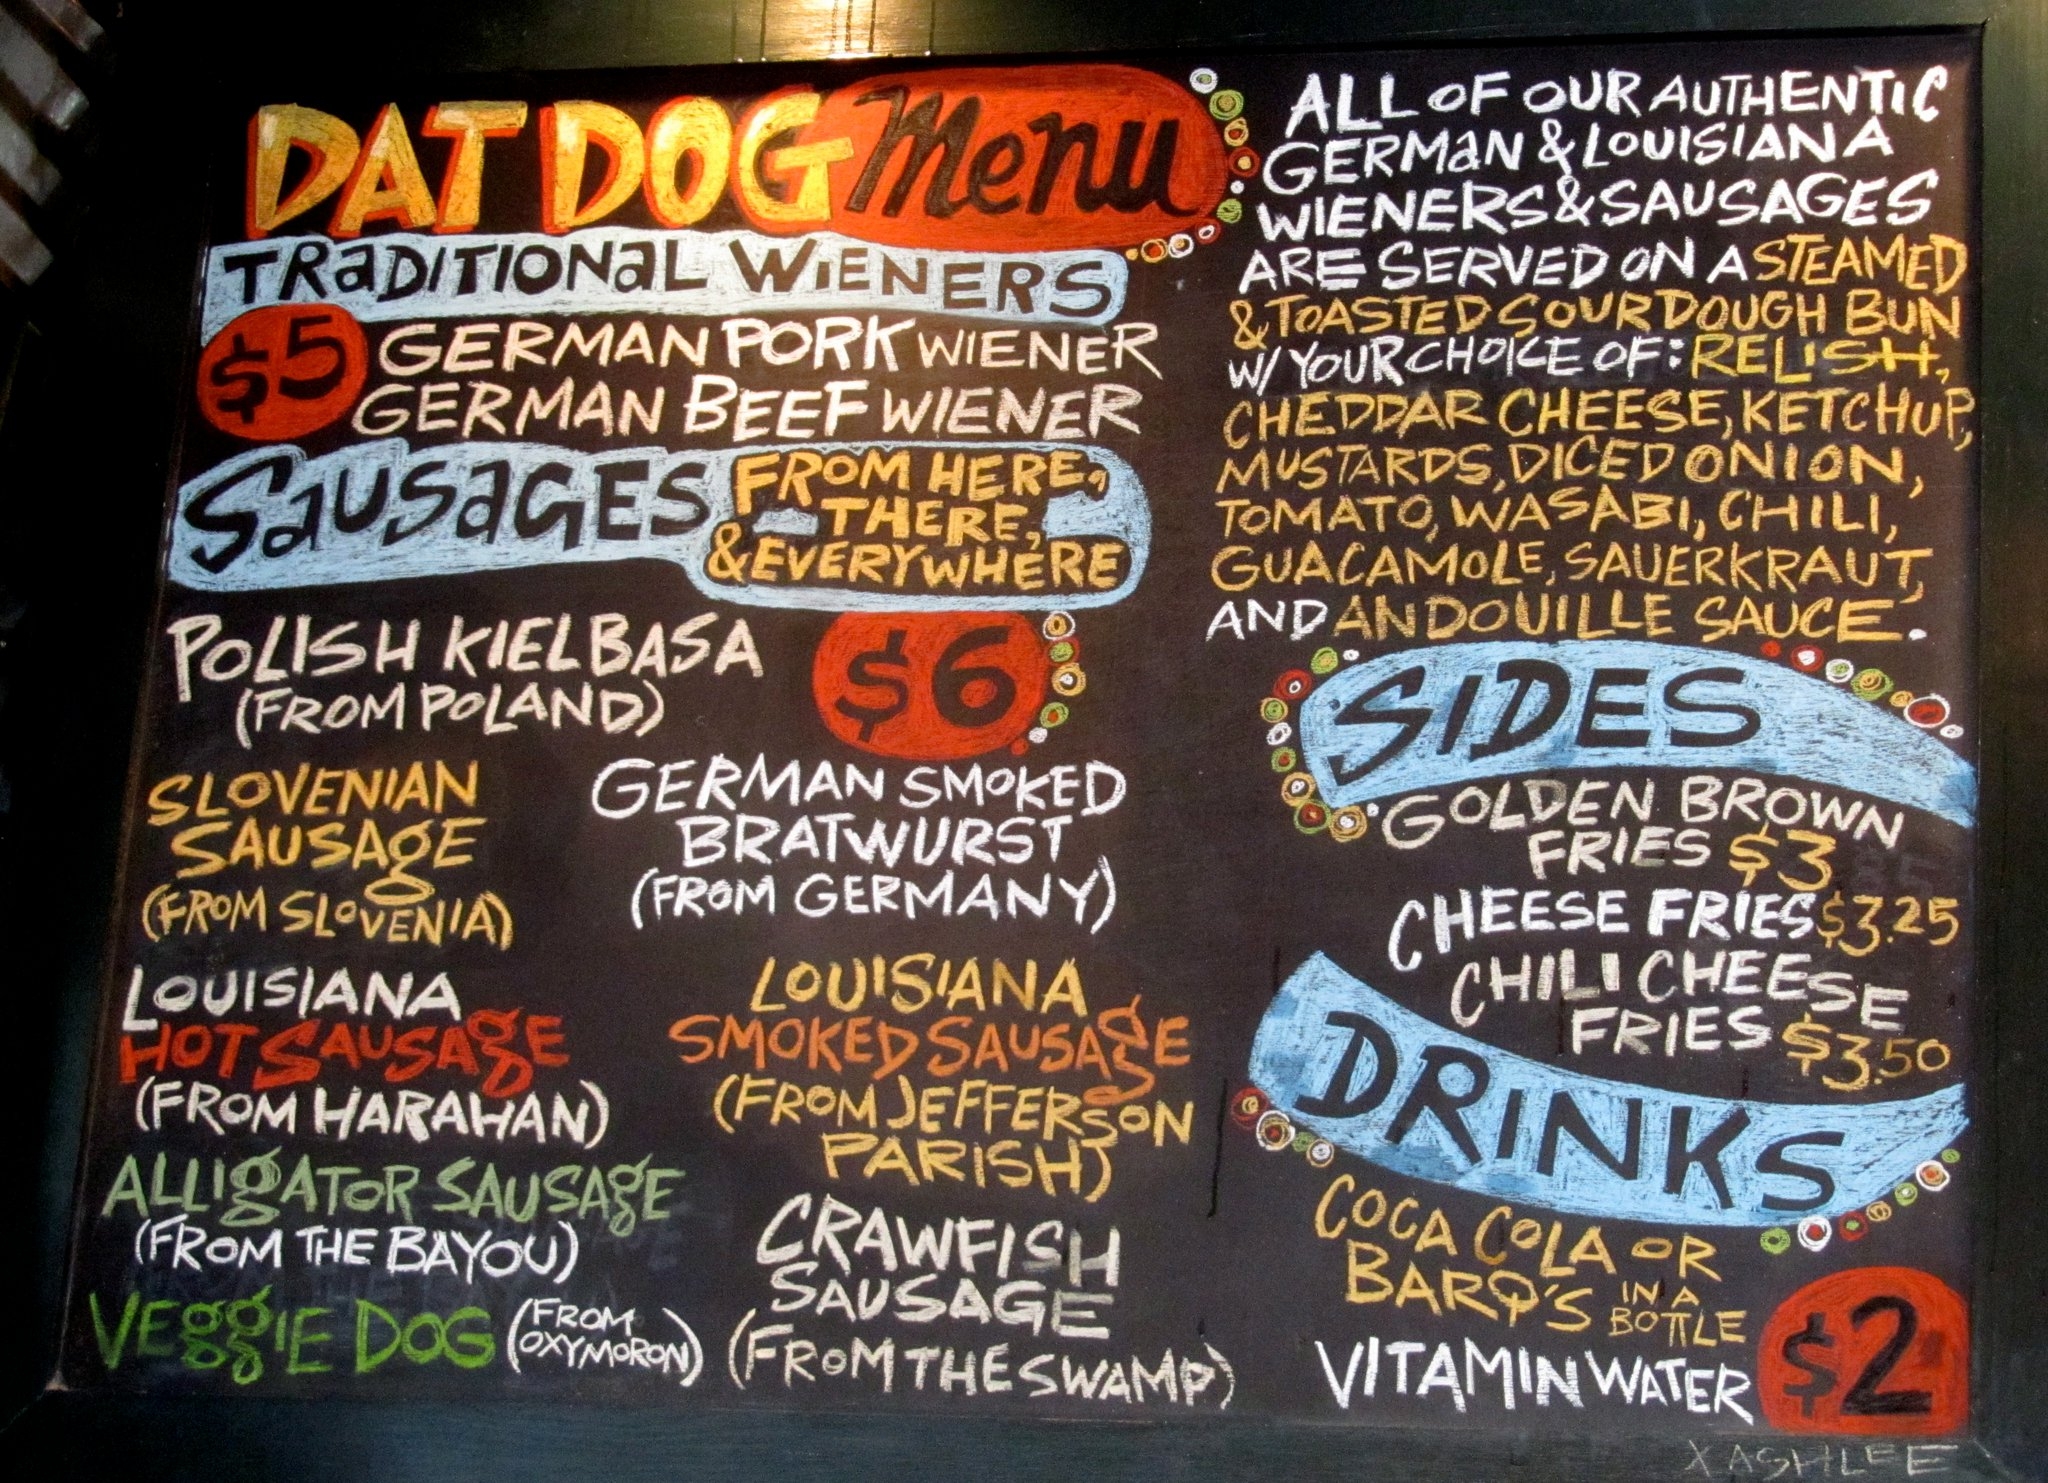 DAT DOG Menu
TRADITIONAL WIENERS
$5
GERMAN PORK WIENER
GERMAN BEEF WIENER
SAUSAGES
FROM HERE,
THERE,
& EVERYWHERE
$6
POLISH KIELBASA
(FROM POLAND)
SLOVENIAN
SAUSAGE
(FROM SLOVENIA)
GERMAN SMOKED
BRATWURST
(FROM GERMANY)
LOUISIANA
HOT SAUSAGE
(FROM HARAHAN)
LOUISIANA
SMOKED SAUSAGE
(FROM JEFFERSON
PARISH)
ALLIGATOR SAUSAGE
(FROM THE BAYOU)
CRAWFISH
SAUSAGE
(FROM THE SWAMP)
VEGGIE DOG (FROM
OXYMORON)
ALL OF OUR AUTHENTIC
GERMAN & LOUISIANA
WIENERS & SAUSAGES
ARE SERVED ON A STEAMED
& TOASTED SOURDOUGH BUN
W/ YOUR CHOICE OF: RELISH,
CHEDDAR CHEESE, KETCHUP,
MUSTARDS, DICED ONION,
TOMATO, WASABI, CHILI,
GUACAMOLE, SAUERKRAUT,
AND ANDOUILLE SAUCE.
SIDES
GOLDEN BROWN
FRIES $3
CHEESE FRIES $3.25
CHILI CHEESE
FRIES $3.50
DRINKS
COCA COLA OR
BARQ'S IN A
BOTTLE
VITAMIN WATER
$2
X ASHLEE